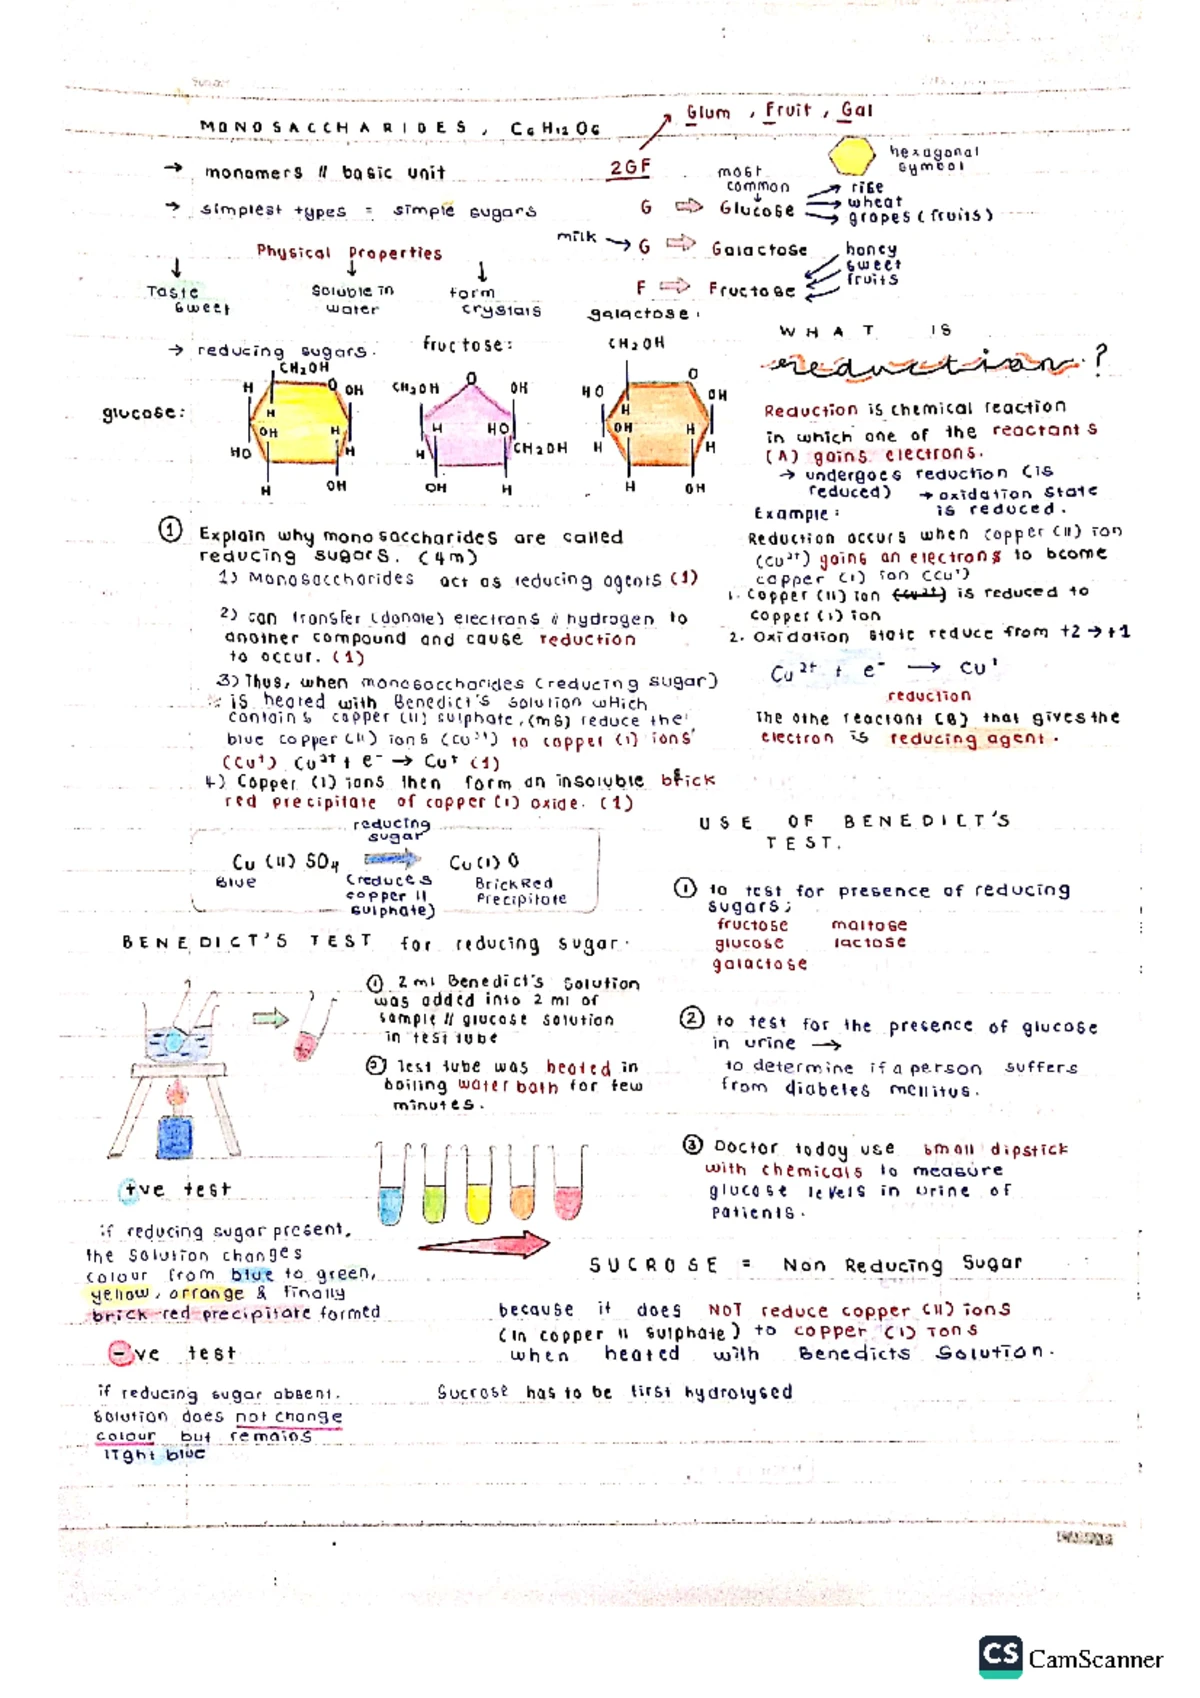 MONOSACCHARIDES, C6H12O6
Glum, Fruit, Gal
→ monomers // basic unit
→ simplest types = simple sugars
2GF
hexagonal
symbol
most
common
G ⇒ Glucose
rice
wheat
grapes (fruits)
milk → G ⇒ Galactose
F ⇒ Fructose
honey
sweet
fruits
Physical Properties
Taste
sweet
Soluble in
water
form
crystals
→ reducing sugars.
glucose:
CH2OH
H
O
OH
H
OH
H
HO
H
H
OH
fructose:
CH2OH
O
OH
H
HO
H
CH2OH
OH
H
galactose:
CH2OH
HO
O
OH
H
OH
H
H
H
H
OH
WHAT IS
reduction?
Reduction is chemical reaction
in which one of the reactants
(A) gains electrons.
→ undergoes reduction (is
reduced) → oxidation state
is reduced.
Example:
Reduction occurs when copper (II) ion
(Cu2+) gains an electrons to bcome
copper (I) ion (Cu+)
1. Copper (II) ion (Cu2+) is reduced to
copper (I) ion
2. Oxidation state reduce from +2 → +1
Cu2+ + e- → Cu+
reduction
The othe reactant (B) that gives the
electron is reducing agent.
① Explain why monosaccharides are called
reducing sugars. (4m)
1) Monosaccharides act as reducing agents (1)
2) can transfer (donate) electrons // hydrogen to
another compound and cause reduction
to occur. (1)
3) Thus, when monosaccharides (reducing sugar)
is heated with Benedict's solution which
contains copper (II) sulphate, (ms) reduce the
blue copper (II) ions (Cu2+) to copper (I) ions
(Cu+) Cu2+ + e- → Cu+ (1)
4) Copper (I) ions then form an insoluble brick
red precipitate of copper (I) oxide. (1)
reducing
sugar
Cu (II) SO4
Cu(I) O
Blue
(reduces
copper II
sulphate)
Brick Red
Precipitate
BENEDICT'S TEST for reducing sugar.
① 2 ml Benedict's solution
was added into 2 ml of
sample // glucose solution
in test tube
② Test tube was heated in
boiling water bath for few
minutes.
+ve test
if reducing sugar present,
the solution changes
colour from blue to green,
yellow, orrange & finally
brick-red precipitate formed
-ve test
if reducing sugar absent.
solution does not change
colour but remains
light blue
USE OF BENEDICT'S
TEST.
① to test for presence of reducing
sugars;
fructose maltose
glucose lactose
galactose
② to test for the presence of glucose
in urine →
to determine if a person suffers
from diabetes mellitus.
③ Doctor today use small dipstick
with chemicals to measure
glucose levels in urine of
patients.
SUCROSE = Non Reducing Sugar
because it does NOT reduce copper (II) ions
(in copper II sulphate) to copper (I) ions
when heated with Benedicts Solution.
Sucrose has to be first hydrolysed
CS CamScanner